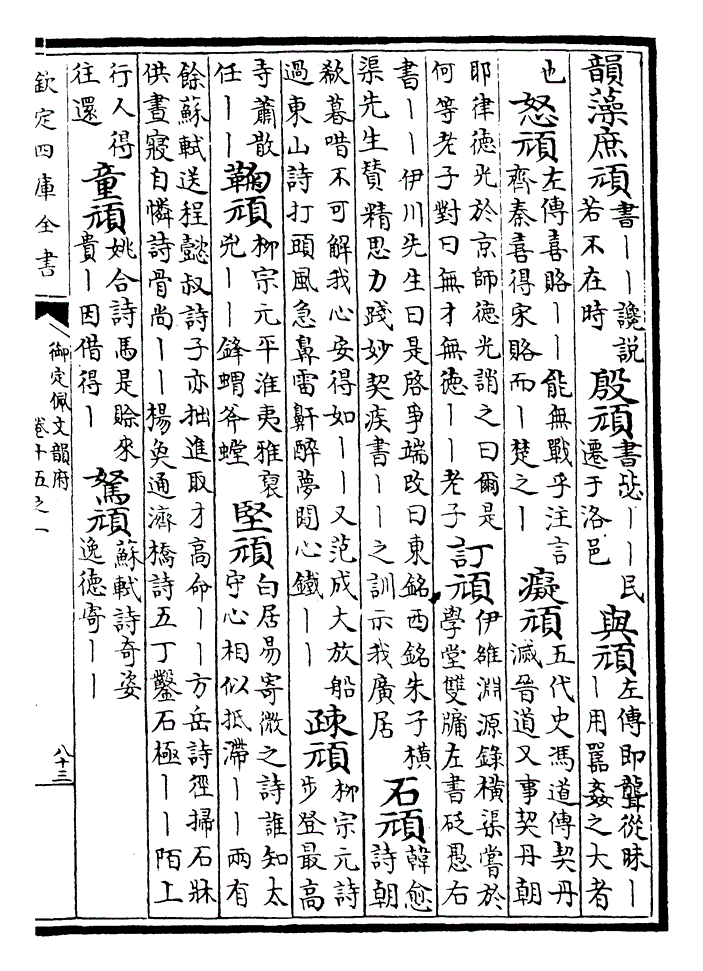 韻藻庶頑書丨丨讒說若不在時殷頑書毖丨丨民遷于洛邑與頑左傳即聾從昧丨丨用嚚姦之大者
也怒頑左傳喜賂丨丨能無戰乎注言齊秦喜得宋賂而丨楚之丨癡頑五代史馮道傳契丹滅晉道又事契丹朝
耶律德光於京師德光誚之曰爾是何等老子對曰無才無德丨丨老子訂頑伊雒淵源錄橫渠嘗於學堂雙牖左書砭愚右
書丨丨伊川先生曰是啓爭端改曰東銘西銘朱子橫渠先生贊精思力踐妙契疾書丨丨之訓示我廣居石頑韓愈詩朝
欷暮唶不可解我心安得如丨丨又范成大放船過東山詩打頭風急鼻雷鼾醉夢閱心鐵丨丨疎頑柳宗元詩步登最高
寺蕭散任丨丨鞠頑柳宗元平淮夷雅裒兇丨丨鋒蝟斧螗堅頑白居易寄微之詩誰知太守心相似抵滯丨丨兩有
餘蘇軾送程懿叔詩子亦拙進取才高命丨丨方岳詩徑掃石牀供晝寢自憐詩骨尚丨丨楊奐通濟橋詩五丁鑿石極丨丨陌上
行人得往還童頑姚合詩馬是賒來貴丨因借得丨駑頑蘇軾詩奇姿逸德寄丨丨
欽定四庫全書
御定佩文韻府
卷十五之一
八十三